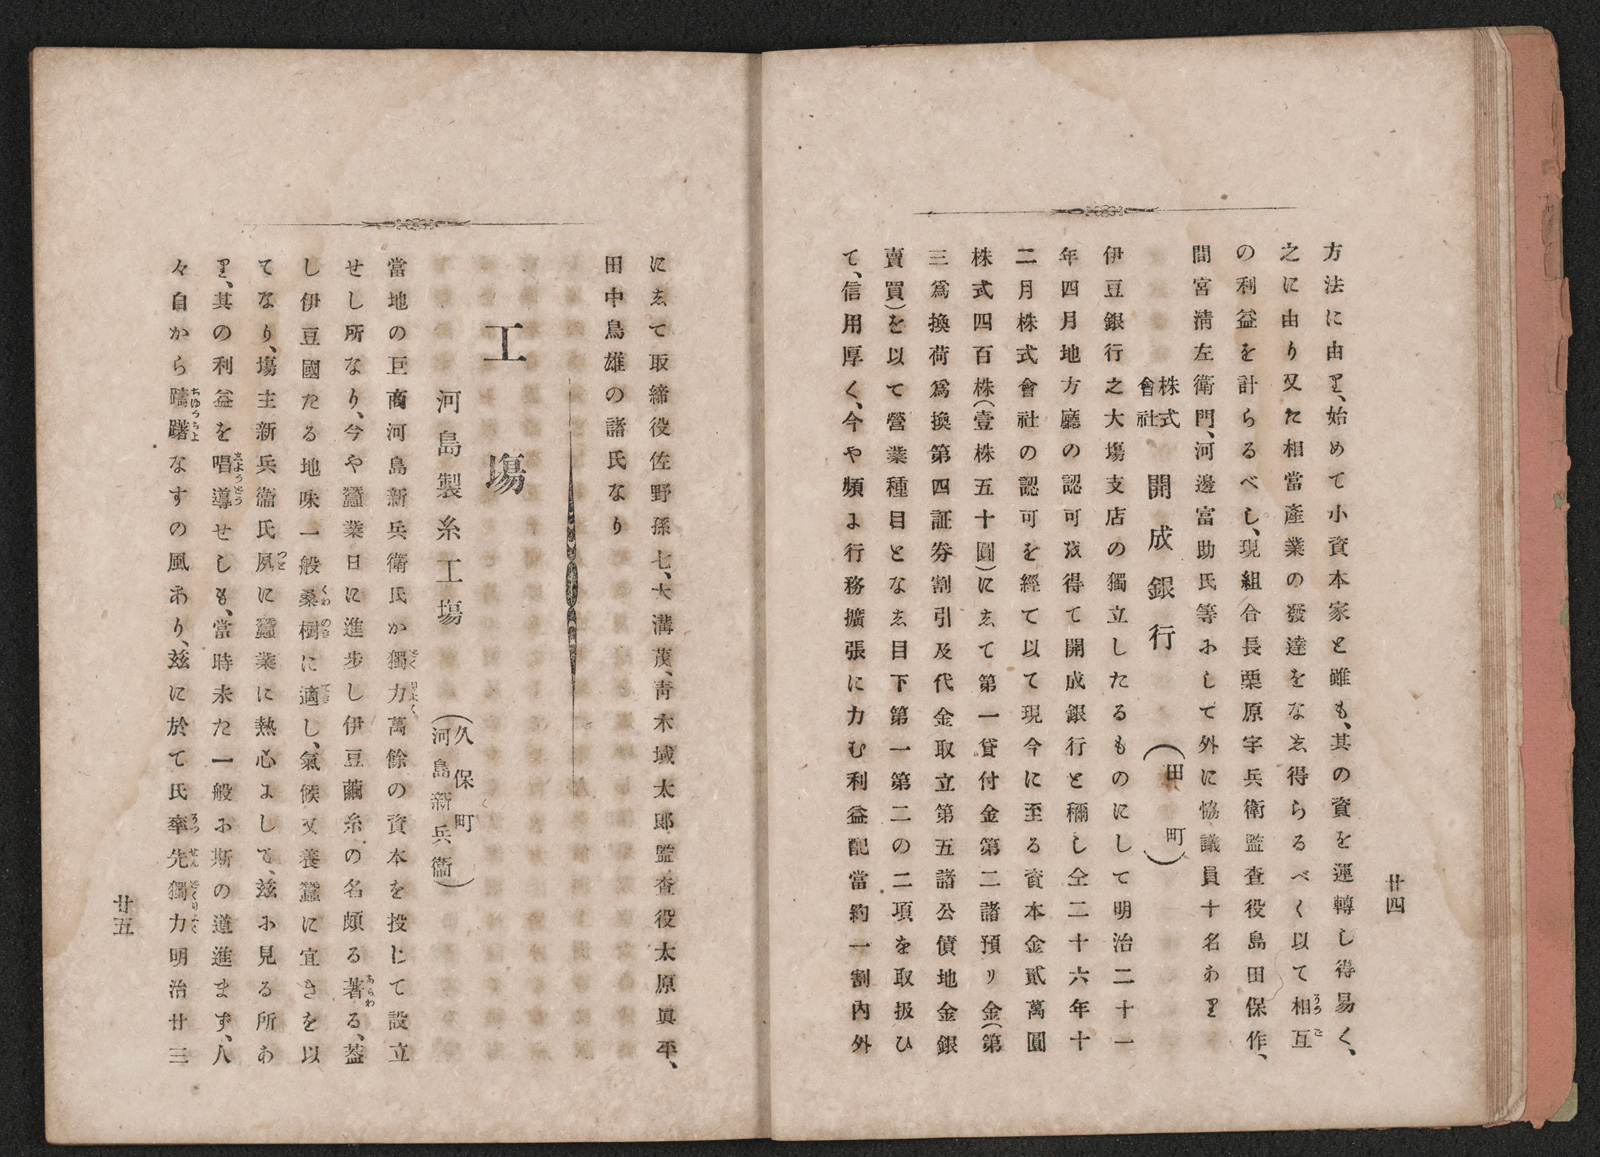 廿四
方法に由り、始めて小資本家と雖も、其の資を運轉し得易く、
之に由り又た相當產業の發達をなゑ得らるべく以て相互
の利益を計らるべし、現組合長栗原宇兵衛監査役島田保作、
間宮淸左衛門、河邊富助氏等おして外に恊議員十名あり
株式會社 開成銀行 (田町)
伊豆銀行之大塲支店の獨立したるものにして明治二十一
年四月地方廳の認可を得て開成銀行と稱し仝二十六年十
二月株式會社の認可を經て以て現今に至る資本金貳萬圓
株式四百株(壹株五十圓)にゑて第一貸付金第二諸預リ金(第
三爲換荷爲換第四証券割引及代金取立第五諸公債地金銀
賣買)を以て營業種目となゑ目下第一第二の二項を取扱ひ
て、信用厚く、今や頻よ行務擴張に力む利益配當約一割內外
にゑて取締役佐野孫七、大溝茂、靑木域太郎監査役太原眞平、
田中鳥雄の諸氏なり
工塲
河島製糸工塲 (久保町 河島新兵衞)
當地の巨商河島新兵衛氏か獨力萬餘の資本を投じて設立
せし所なり、今や蠶業日に進步し伊豆繭糸の名頗る著る、葢
し伊豆國たる地味一般桑樹に適し、氣候又養蠶に宜きを以
てなり、塲主新兵衞氏夙に蠶業に熱心よして、玆お見る所あ
り、其の利益を唱導せしも、當時未た一般お斯の道進まず、人
々自から躊躇なすの風あり、玆に於て氏率先獨力明治廿三
廿五